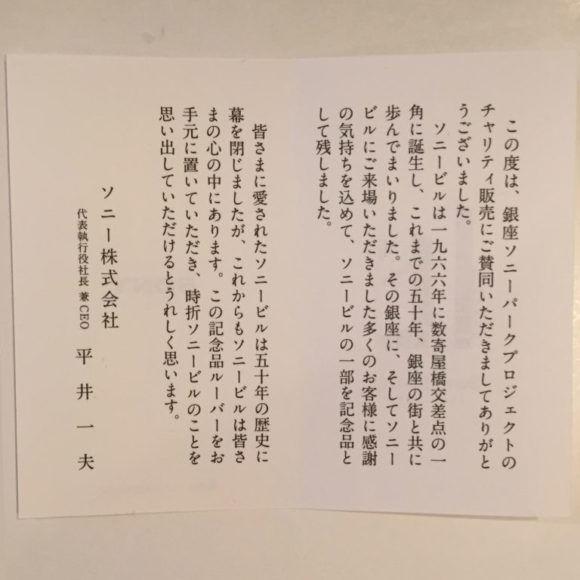 この度は、銀座ソニーパークプロジェクトの
チャリティ販売にご賛同いただきましてありがと
うございました。
ソニービルは一九六六年に数寄屋橋交差点の一
角に誕生し、これまでの五十年、銀座の街と共に
歩んでまいりました。その銀座に、そしてソニー
ビルにご来場いただきました多くのお客様に感謝
の気持ちを込めて、ソニービルの一部を記念品と
して残しました。
皆さまに愛されたソニービルは五十年の歴史に
幕を閉じましたが、これからもソニービルは皆さ
まの心の中にあります。この記念品ルーバーをお
手元に置いていただき、時折ソニービルのことを
思い出していただけるとうれしく思います。
ソニー株式会社
代表執行役社長 兼 CEO 平井一夫